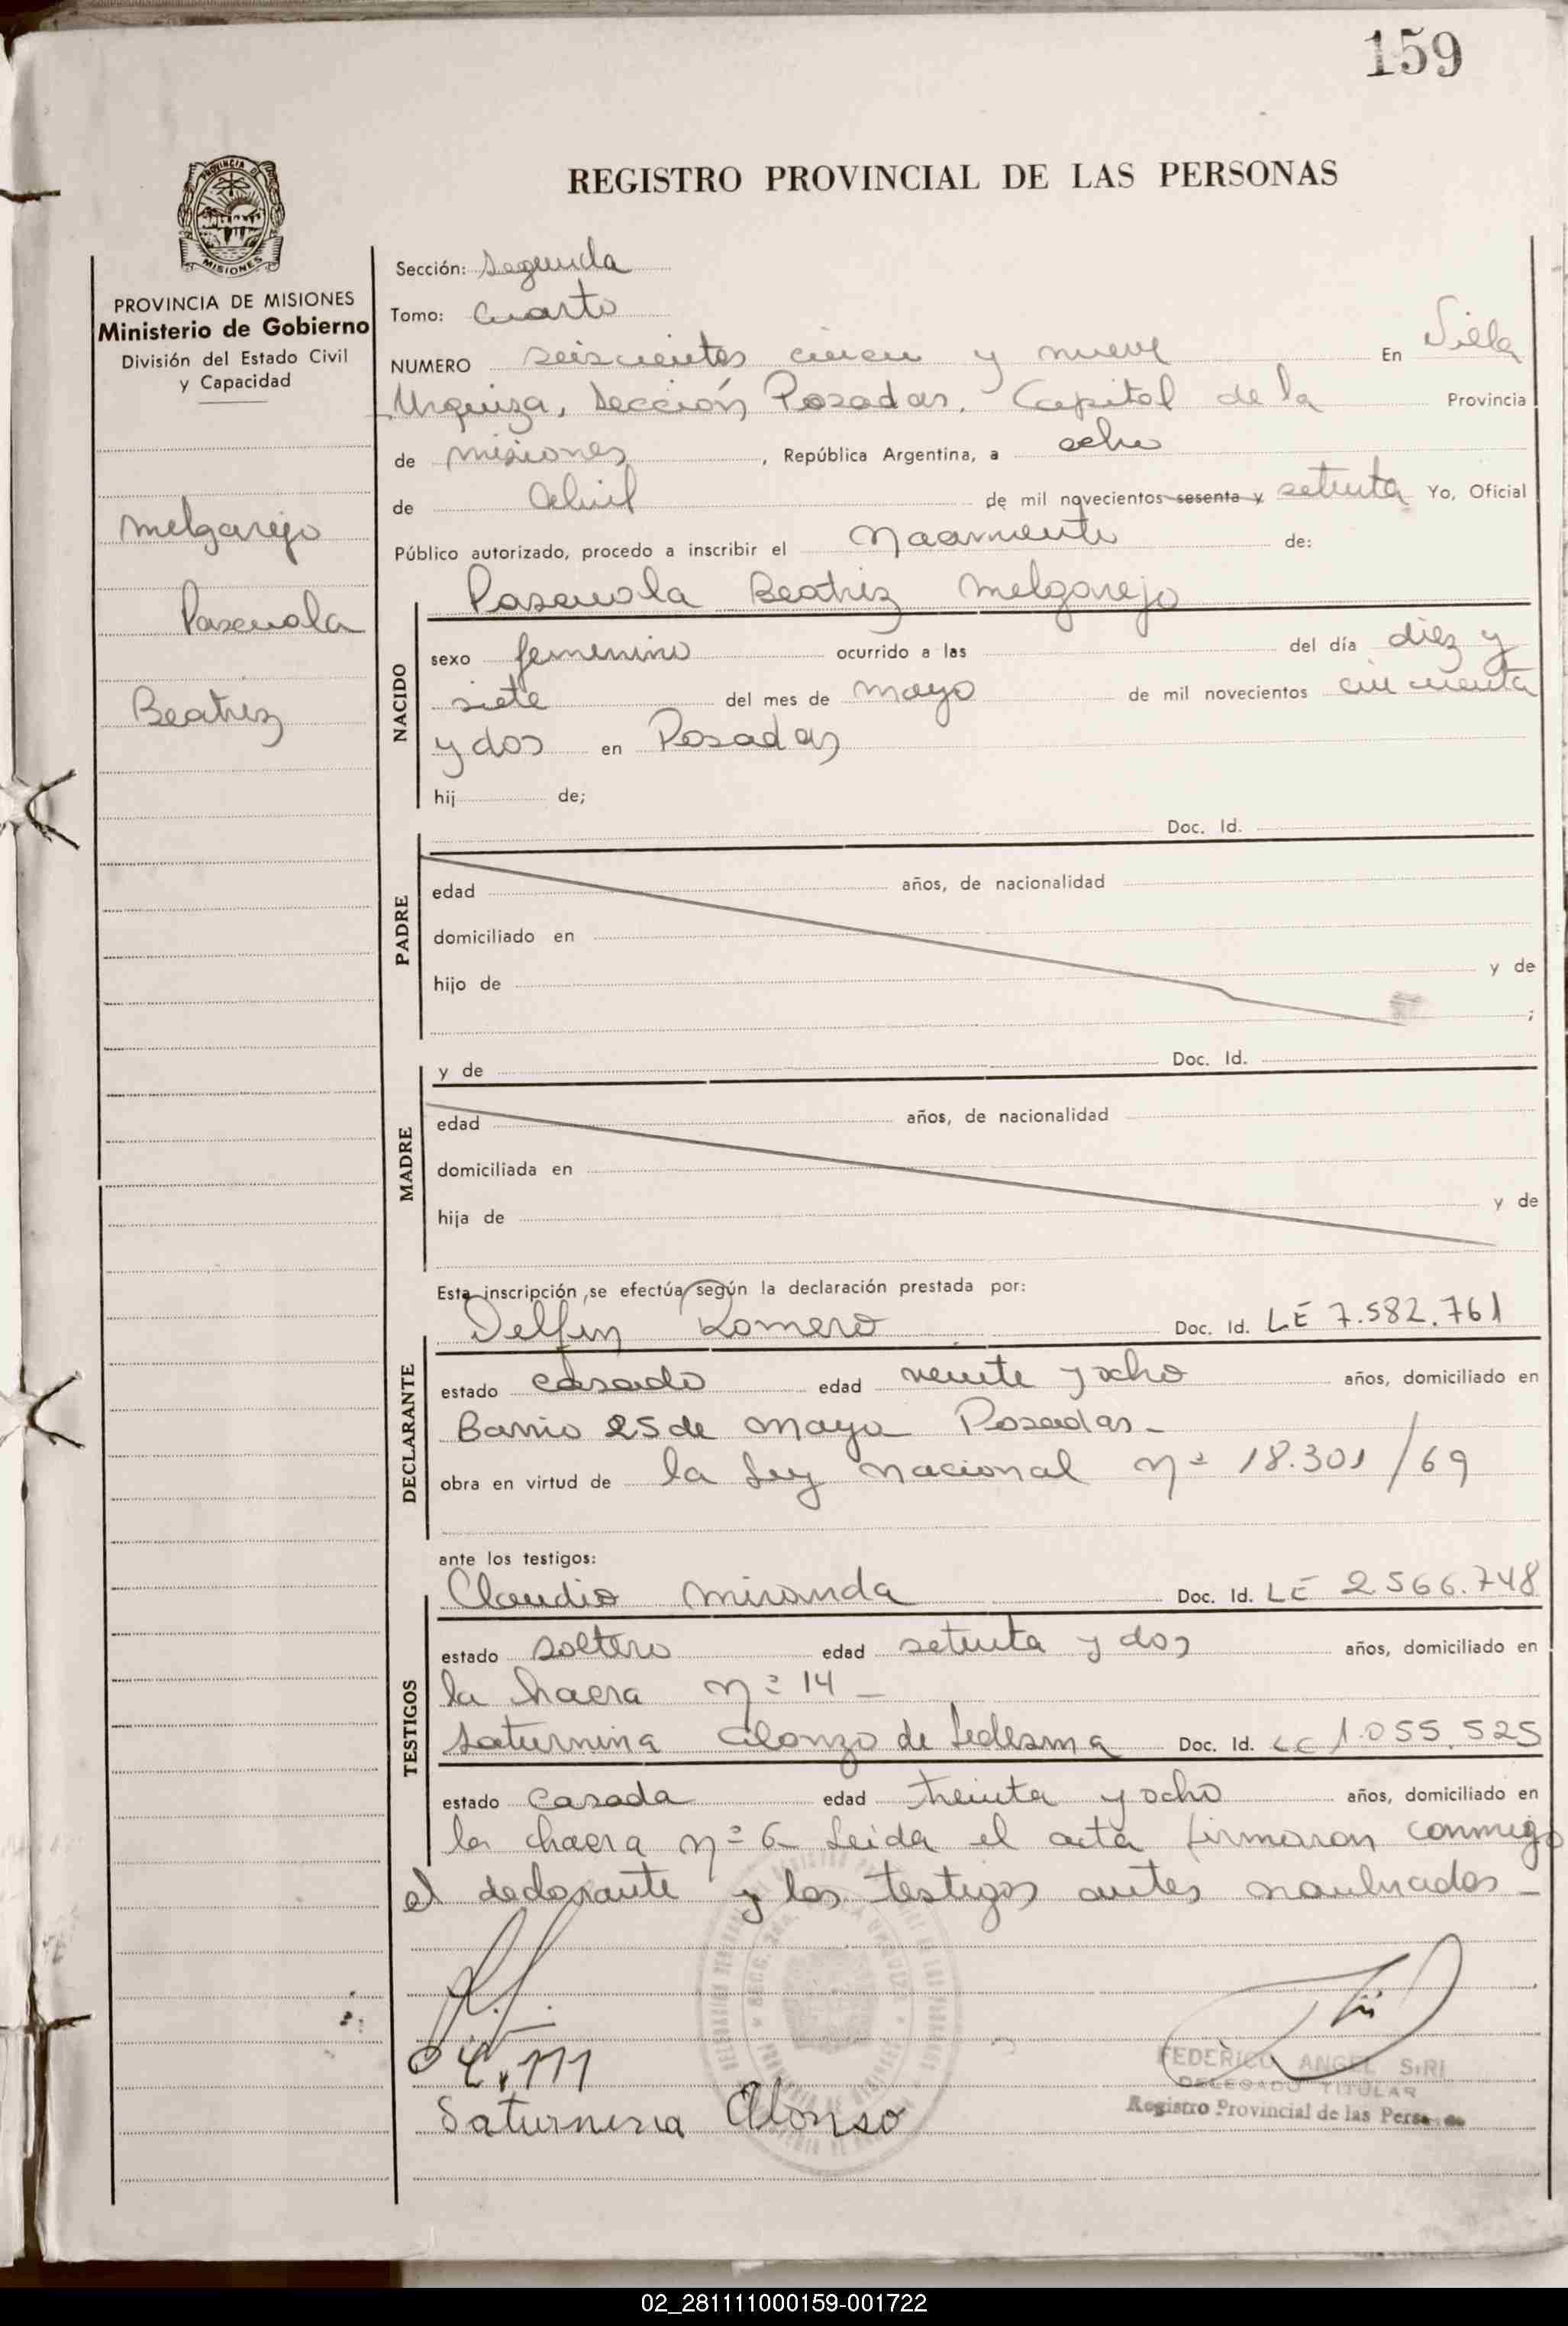 159
REGISTRO PROVINCIAL DE LAS PERSONAS
PROVINCIA DE
MISIONES
PROVINCIA DE MISIONES
Ministerio de Gobierno
División del Estado Civil
y Capacidad
Melgarejo
Pascuala
Beatriz
Sección: Segunda
Tomo: Cuarto
NUMERO seiscientos cincu y nueve En Villa
Urquiza, Sección Posadas, Capital de la Provincia
de misiones, República Argentina, a ocho
de Abril de mil novecientos sesenta y setenta Yo, Oficial
Público autorizado, procedo a inscribir el Nacimiento de:
Pascuala Beatriz Melgarejo
NACIDO
sexo femenino ocurrido a las del día diez y
siete del mes de mayo de mil novecientos cincuenta
y dos en Posadas
hij de;
Doc. Id.
PADRE
edad años, de nacionalidad
domiciliado en
hijo de y de
;
MADRE
y de Doc. Id.
edad años, de nacionalidad
domiciliada en
hija de y de
Esta inscripción se efectúa según la declaración prestada por:
Delfin Romero Doc. Id. LE 7.582.761
DECLARANTE
estado casado edad veinte y ocho años, domiciliado en
Barrio 25 de mayo Posadas-
obra en virtud de la Ley nacional Nº 18.301/69
ante los testigos:
Claudio Miranda Doc. Id. LE 2.566.748
TESTIGOS
estado soltero edad setenta y dos años, domiciliado en
la chacra Nº 14-
Saturnina Alonzo de Ledesma Doc. Id. LC 1.055.525
estado casada edad treinta y ocho años, domiciliado en
la chacra Nº 6- Leida el acta firmaron conmigo
el declarante y los testigos antes nombrados-
C.M
Saturnina Alonso
FEDERICO ANGEL SIRI
DELEGADO TITULAR
Registro Provincial de las Personas
02_281111000159-001722